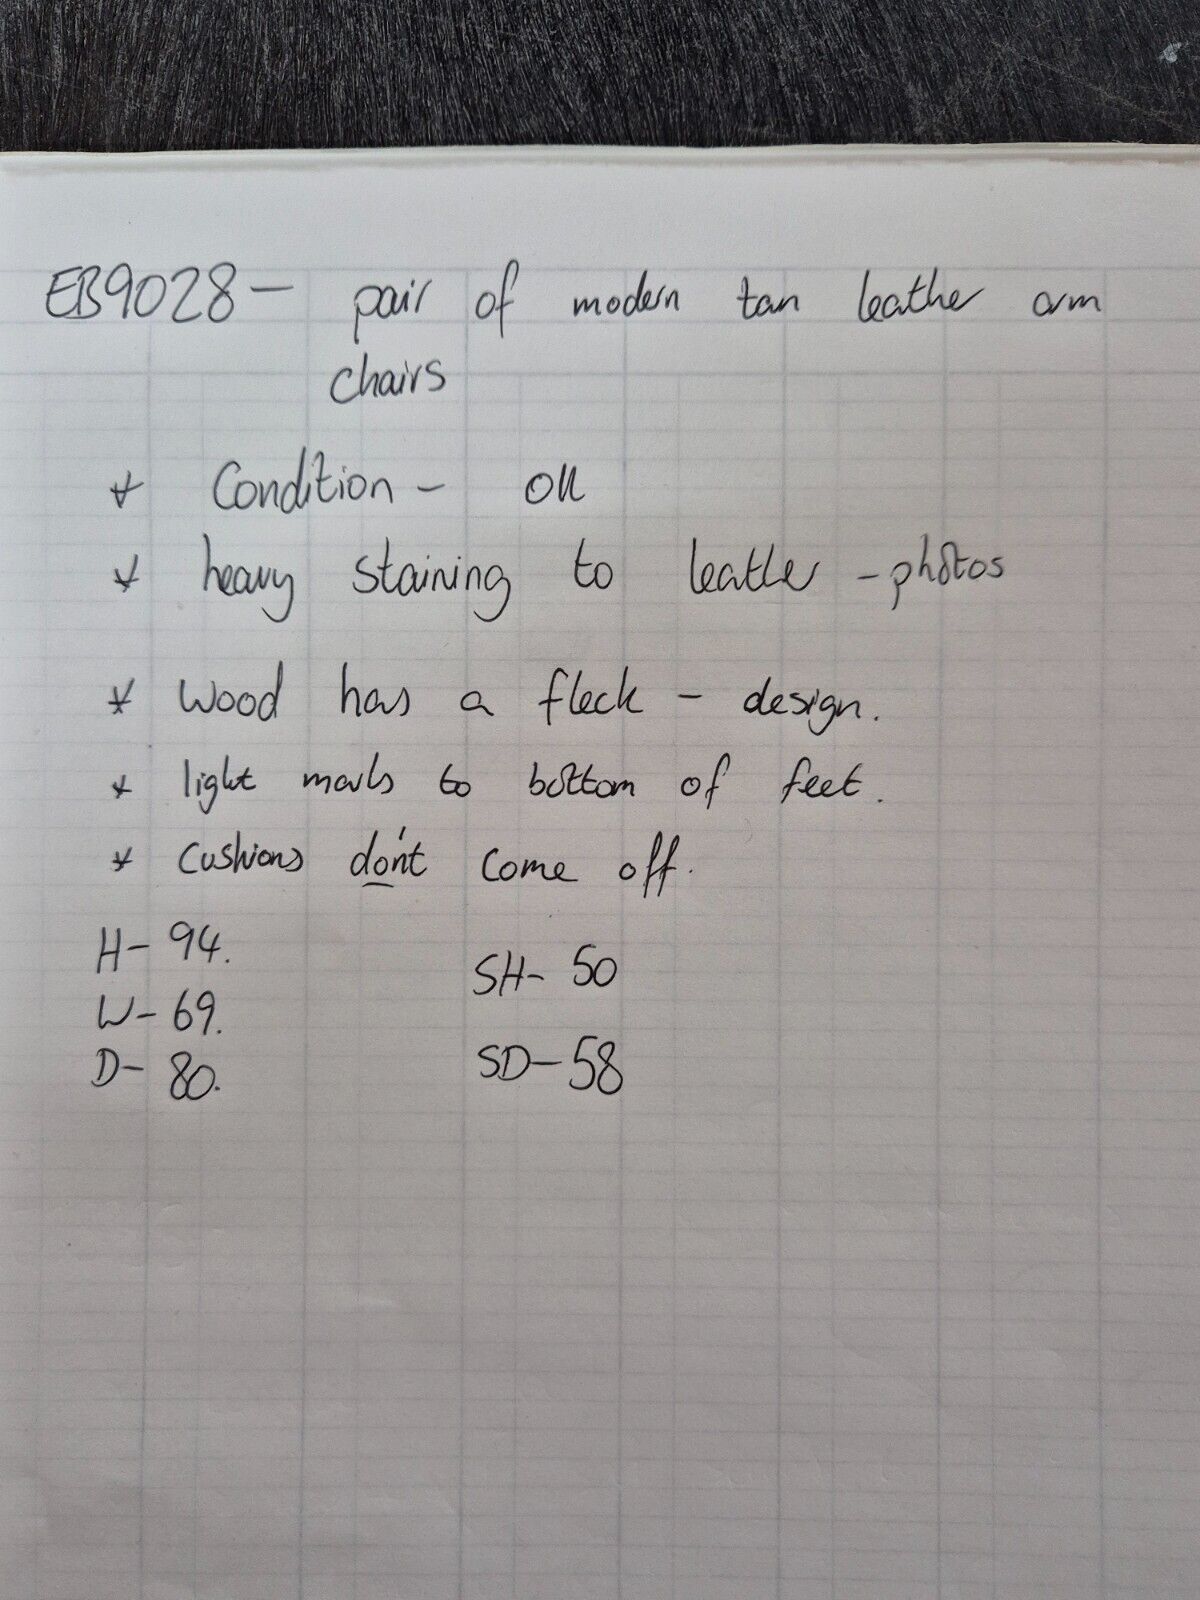 EB9028 - pair of modern tan leather arm
chairs
* Condition - OK
* heavy staining to leather - photos
* Wood has a fleck - design.
* light marks to bottom of feet.
* Cushions don't come off.
H - 94.
W - 69.
D - 80.
SH - 50
SD - 58